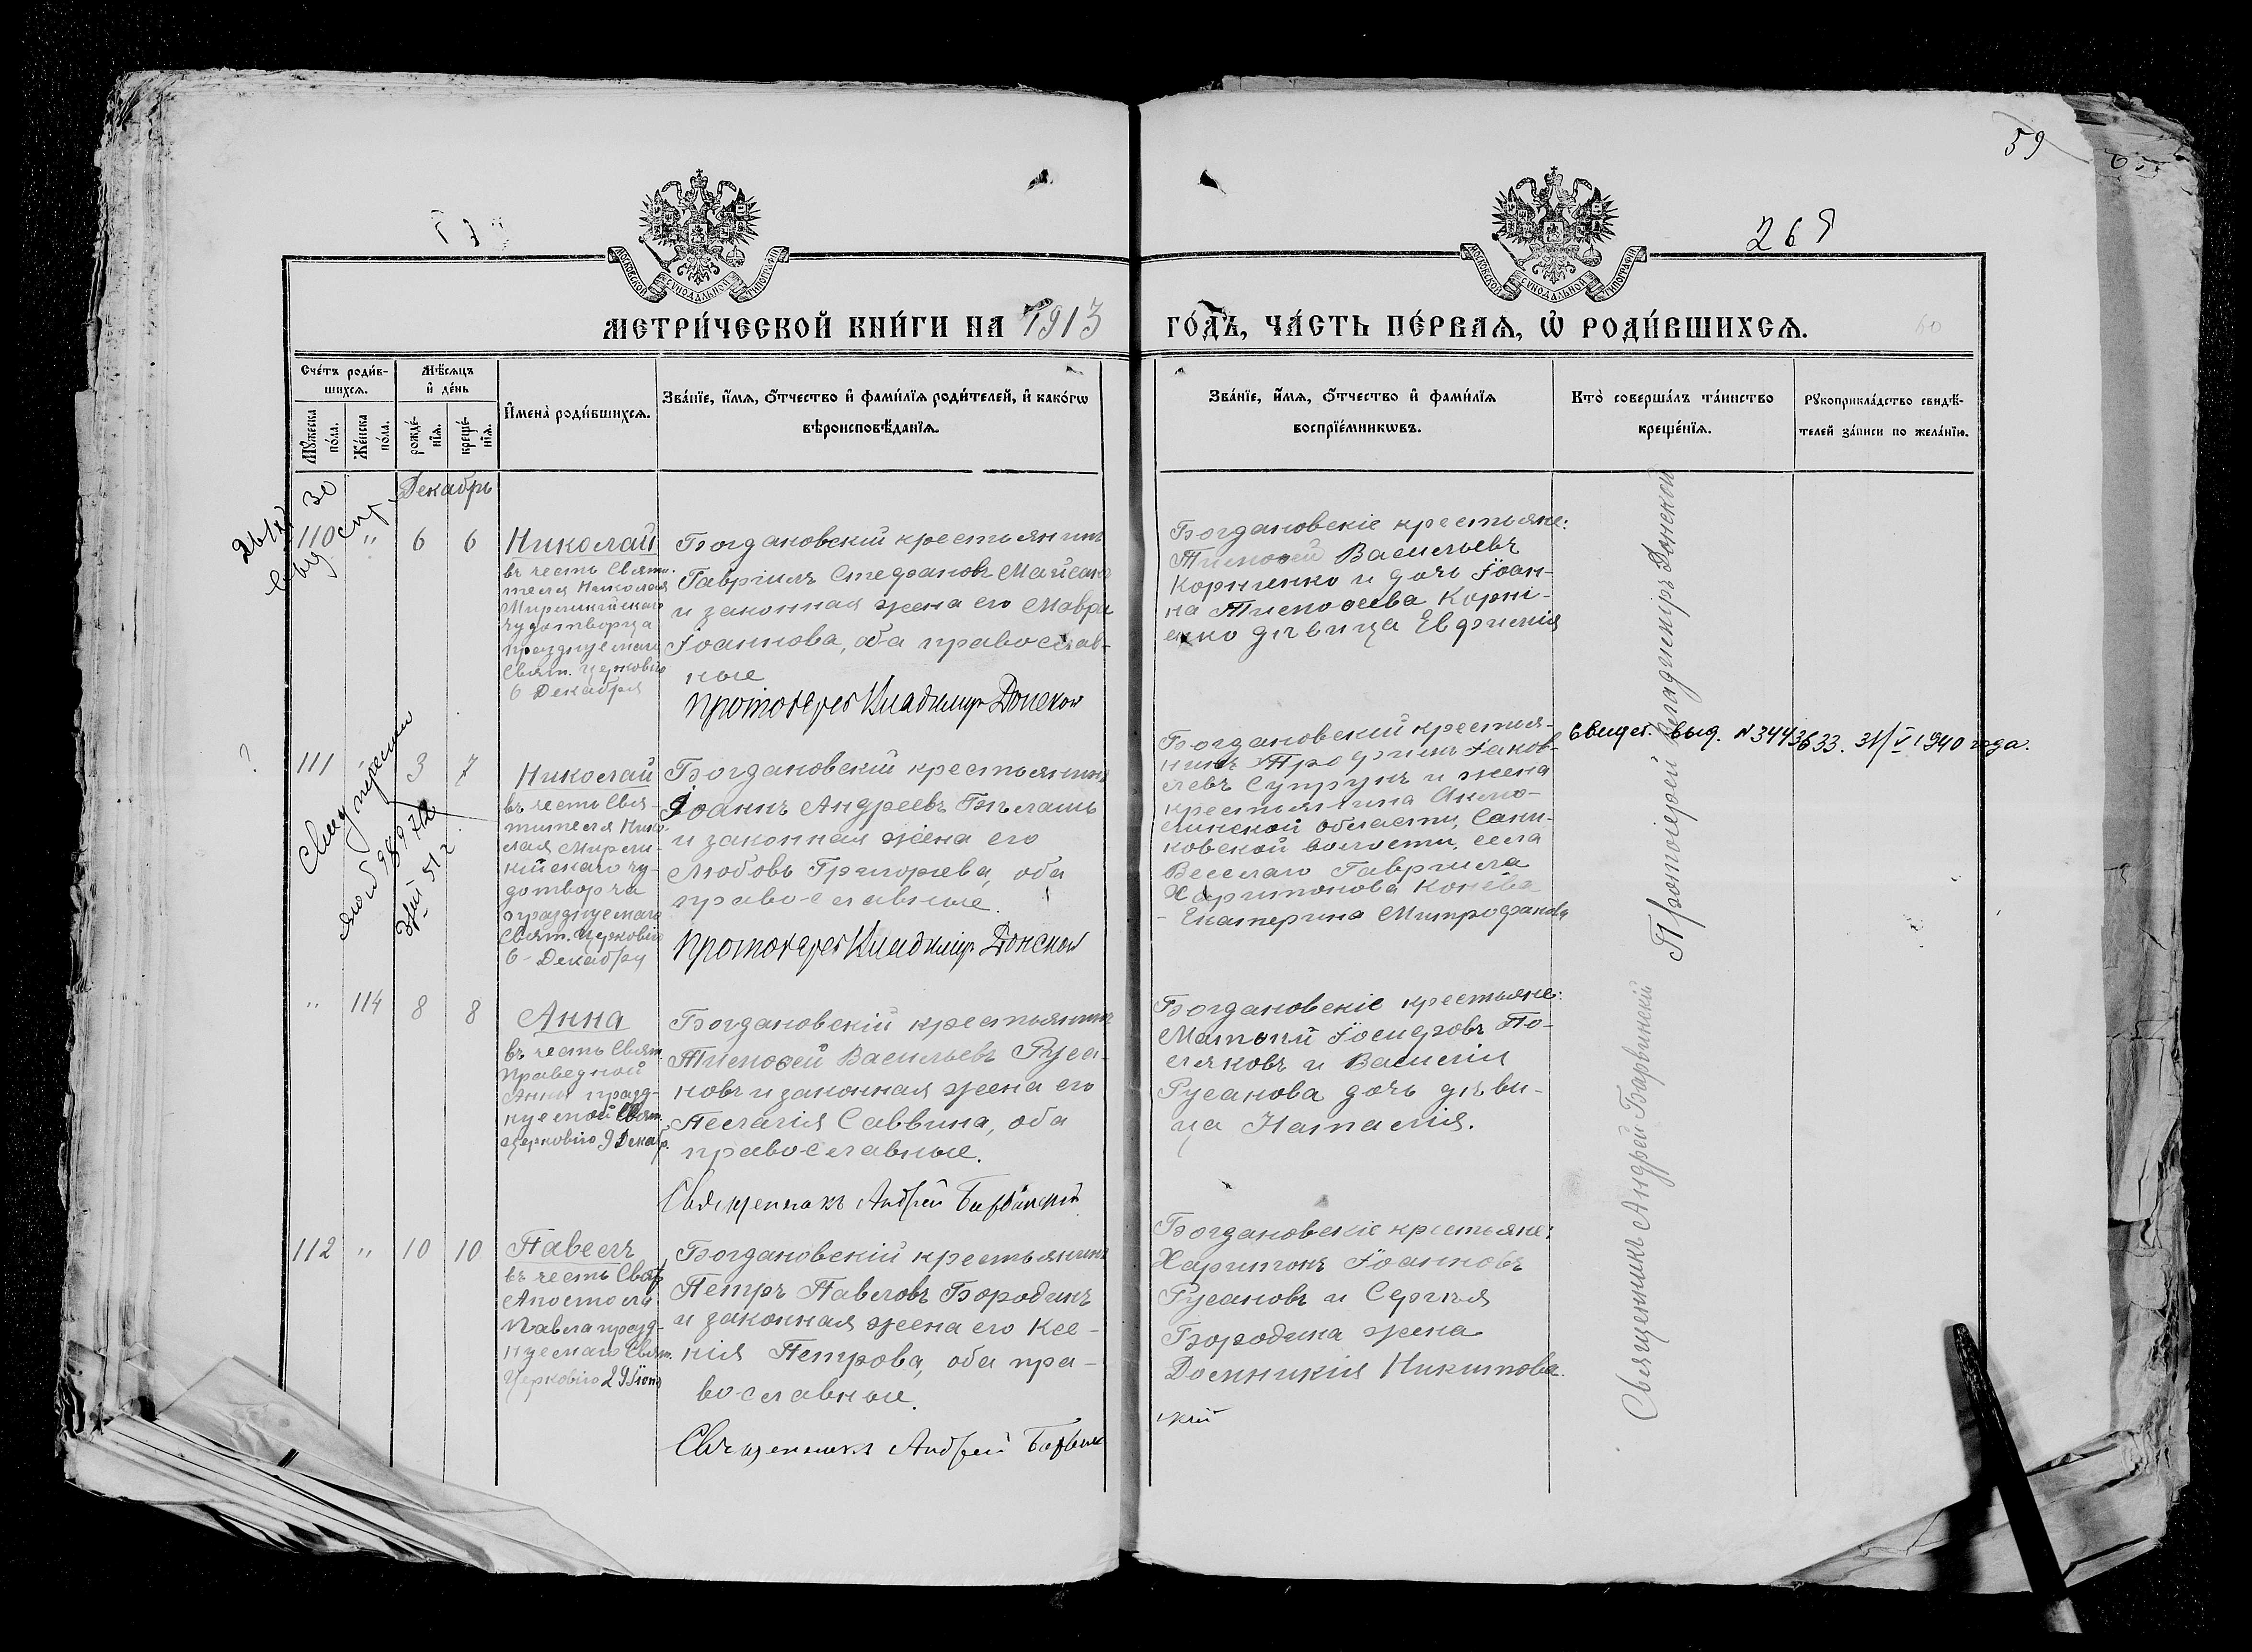 59
268
МОСКОВСКОЙ СѴНОДАЛЬНОЙ ТИПОГРАФІИ
МОСКОВСКОЙ СѴНОДАЛЬНОЙ ТИПОГРАФІИ
МЕТРИ́ЧЕСКОЙ КНИ́ГИ НА 1913
ГО́ДЪ, ЧА́СТЬ ПЕ́РВАѦ, Ѡ҆ РОДИ́ВШИХСѦ.
60
Сче́тъ роди́в-
шихсѧ.
Мꙋ́жеска
по́ла.
Же́нска
по́ла.
Мѣ́сѧцъ
и҆ де́нь
рожде́-
нїѧ.
креще́-
нїѧ.
И҆мена̀ роди́вшихсѧ.
Зва́нїе, и҆́мѧ, ѻ҆́тчество и҆ фами́лїѧ роди́телей, и҆ како́гѡ
вѣроисповѣ́данїѧ.
Зва́нїе, и҆́мѧ, ѻ҆́тчество и҆ фами́лїѧ
воспрїе́мникѡвъ.
Кто̀ соверша́лъ та́инство
креще́нїѧ.
Рꙋкоприкла́дство свидѣ́-
телей за́писи по жела́нїю.
Декабрь
110 " 6 6
Николай
въ честь Святи-
теля Николая
Мирликійскаго
чудотворца
празднуемаго
Свят. церковію
6 Декабря
Богдановскій крестьянинъ
Гавріилъ Стефановъ
и законная жена его Мавра
Іоаннова, оба православ-
ные
Протоіерей Владиміръ Донской
Богдановскіе крестьяне:
Тимоѳей Васильевъ
Корніенко и дочь Іоан-
на Тимоѳеева Корні-
енко дѣвица Евфимія
111 3 7
Николай
въ честь Свя-
тителя Нико-
лая Мирли-
кійскаго чу-
дотворца
празднуемаго
Свят. Церковію
6 Декабря
Богдановскій крестьянинъ
Іоаннъ Андреевъ
и законная жена его
Любовь Григорьева, оба
православные.
Протоіерей Владиміръ Донской
Богдановскій крестья-
нинъ Трофимъ Іаков-
левъ Супрунъ и жена
крестьянина Акмо-
линской области,
волости, села
Веселаго Гавріила
Харитонова Конева
- Екатерина Митрофанова
Свидет. выд. N 3443633. 31/V 1940 года.
" 114 8 8
Анна
въ честь Свят.
Праведной
Анны празд-
нуемой Свят.
церковію 9 Декабр.
Богдановскій крестьянинъ
Тимоѳей Васильевъ Руса-
новъ и законная жена его
Пелагія Саввина, оба
православные.
Священникъ Андрей Барвинскій
Богдановскіе крестьяне:
Матѳій Іосифовъ По-
ляковъ и Василія
Русанова дочь дѣви-
ца Наталія.
112 " 10 10
Павелъ
въ честь Свят.
Апостола
Павла празд-
нуемаго Свят.
Церковію 29 Іюня
Богдановскій крестьянинъ
Петръ Павловъ Бородинъ
и законная жена его Ксе-
нія Петрова, оба пра-
вославные.
Священникъ Андрей Барвин
скій
Богдановскіе крестьяне:
Харитонъ Іоанновъ
Русановъ и Сергѣя
Бородина жена
Домникія Никитова.
Протоіерей Владиміръ Донской
Священникъ Андрей Барвинскій